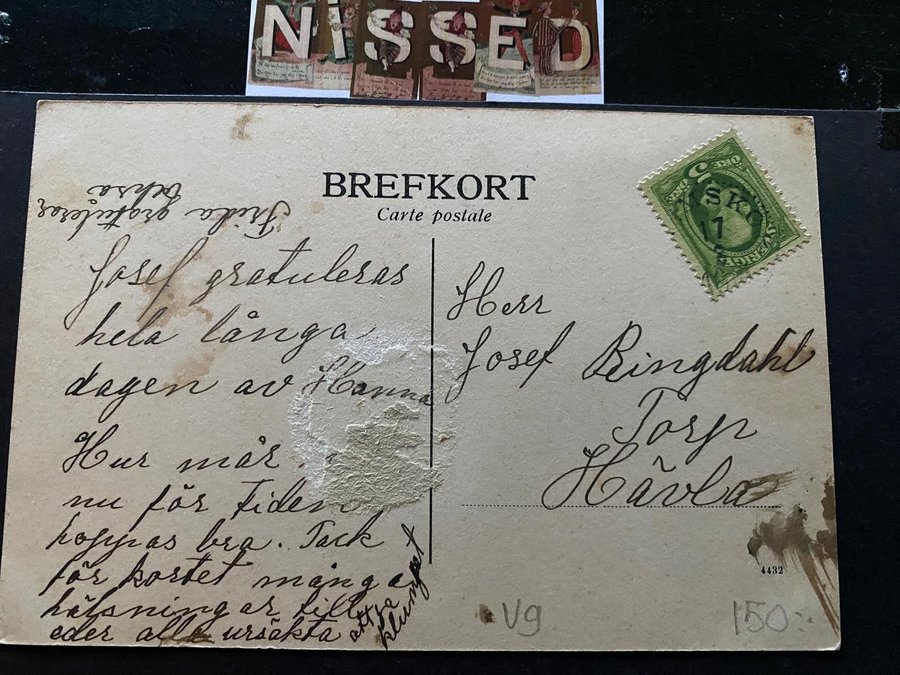 NISSED
BREFKORT
Carte postale
Frida gratulerar
också
Josef gratuleras
hela långa
dagen av Hanna
Hur mår
nu för tiden
hoppas bra. Tack
för kortet många
hälsningar till
eder alla ursäkta
klumpet
Herr
Josef Ringdahl
Torp
Hävla
5
ÖRE
SVERIGE
17
4432
V9
150:-